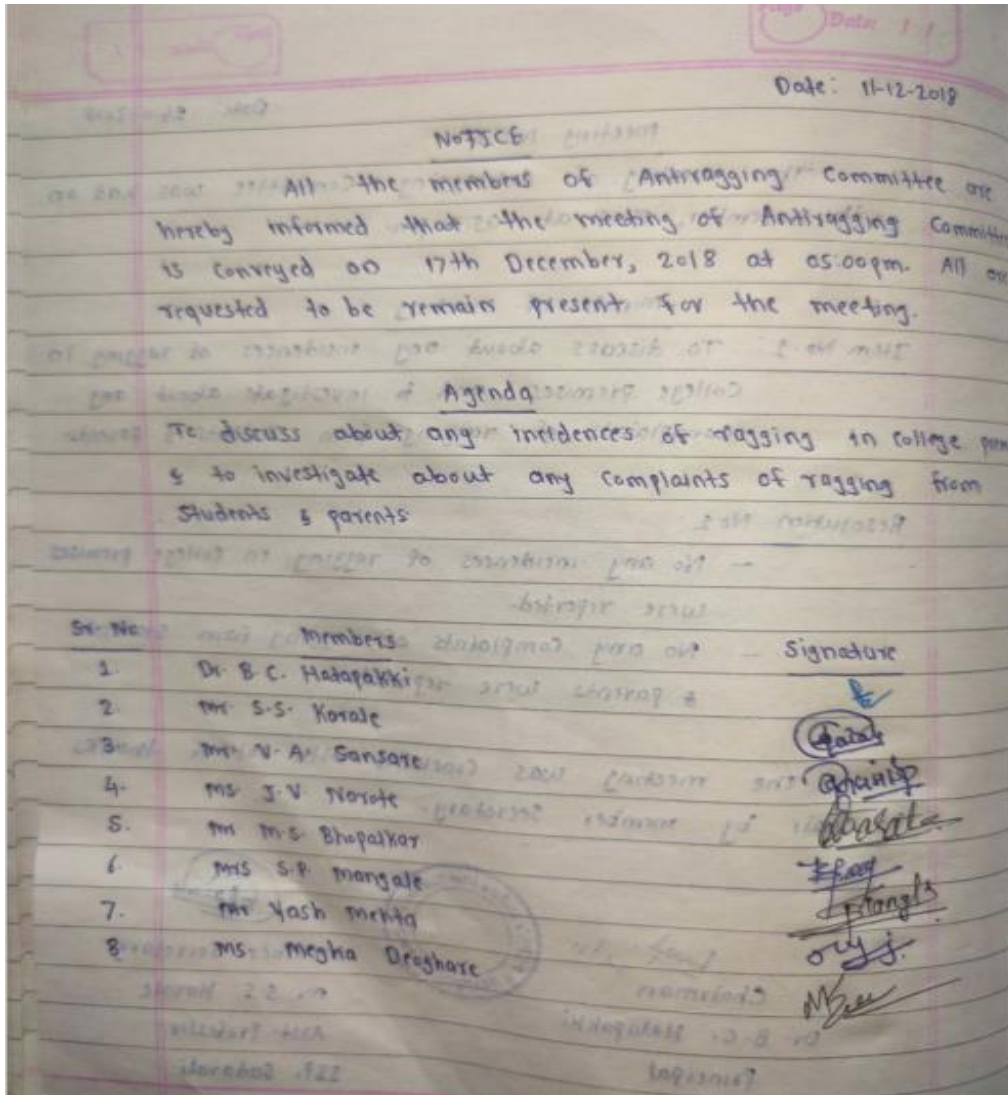 Date: 1 1
Date: 11-12-2018
NOTICE
All the members of Antiragging Committee are
hereby informed that the meeting of Antiragging Committee
is conveyed on 17th December, 2018 at 05:00pm. All are
requested to be remain present for the meeting.
Agenda
To discuss about any incidences of ragging in college prem
& to investigate about any complaints of ragging from
students & parents
Sr. No Members Signature
1. Dr. B.C. Hatapakki
2. Mr. S.S. Korale
3. Mr. V.A. Sansare
4. Ms. J.V. Narote
5. Mr. M.S. Bhopalkar
6. Mrs S.P. Mangale
7. Mr Yash Mehta
8. Ms. Megha Deoghare